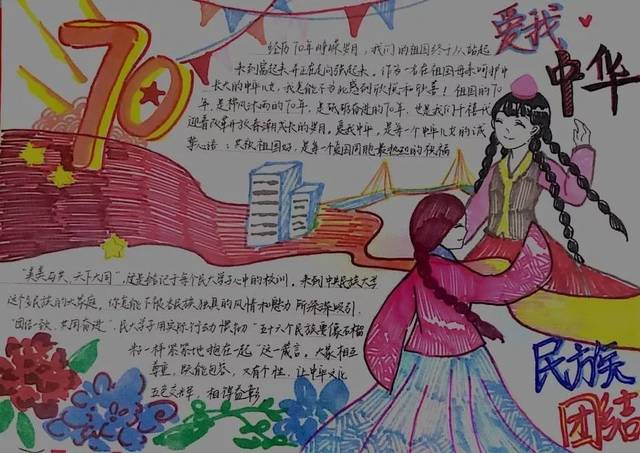 70
爱我
中华
经历70年峥嵘岁月，我们的祖国终于从站起
来到富起来并正在走向强起来。作为一名在祖国母亲呵护中
长大的中华儿女，我是能不为此感到欣慰和欢喜！祖国的70
年，是栉风沐雨的70年，是砥砺奋进的70年，也是我们千禧一代
迎着改革开放春潮成长的岁月。爱我中华，是每个中华儿女的诚
挚心语；共祝祖国好，是每个爱国同胞最热烈的祝福
"美美与共、天下大同"，这是铭记于每个民大学子心中的校训。来到中央民族大学
这个多民族的大家庭，你怎能不被各民族独具的风情和魅力所深深吸引，
"团结一致、共同奋进"，民大学子用实际行动贯彻"五十六个民族要像石榴
籽一样紧紧地抱在一起"这一箴言。大家相互
尊重，既能包容，又有个性，让中华文化
五色交辉，相得益彰
民族
团结